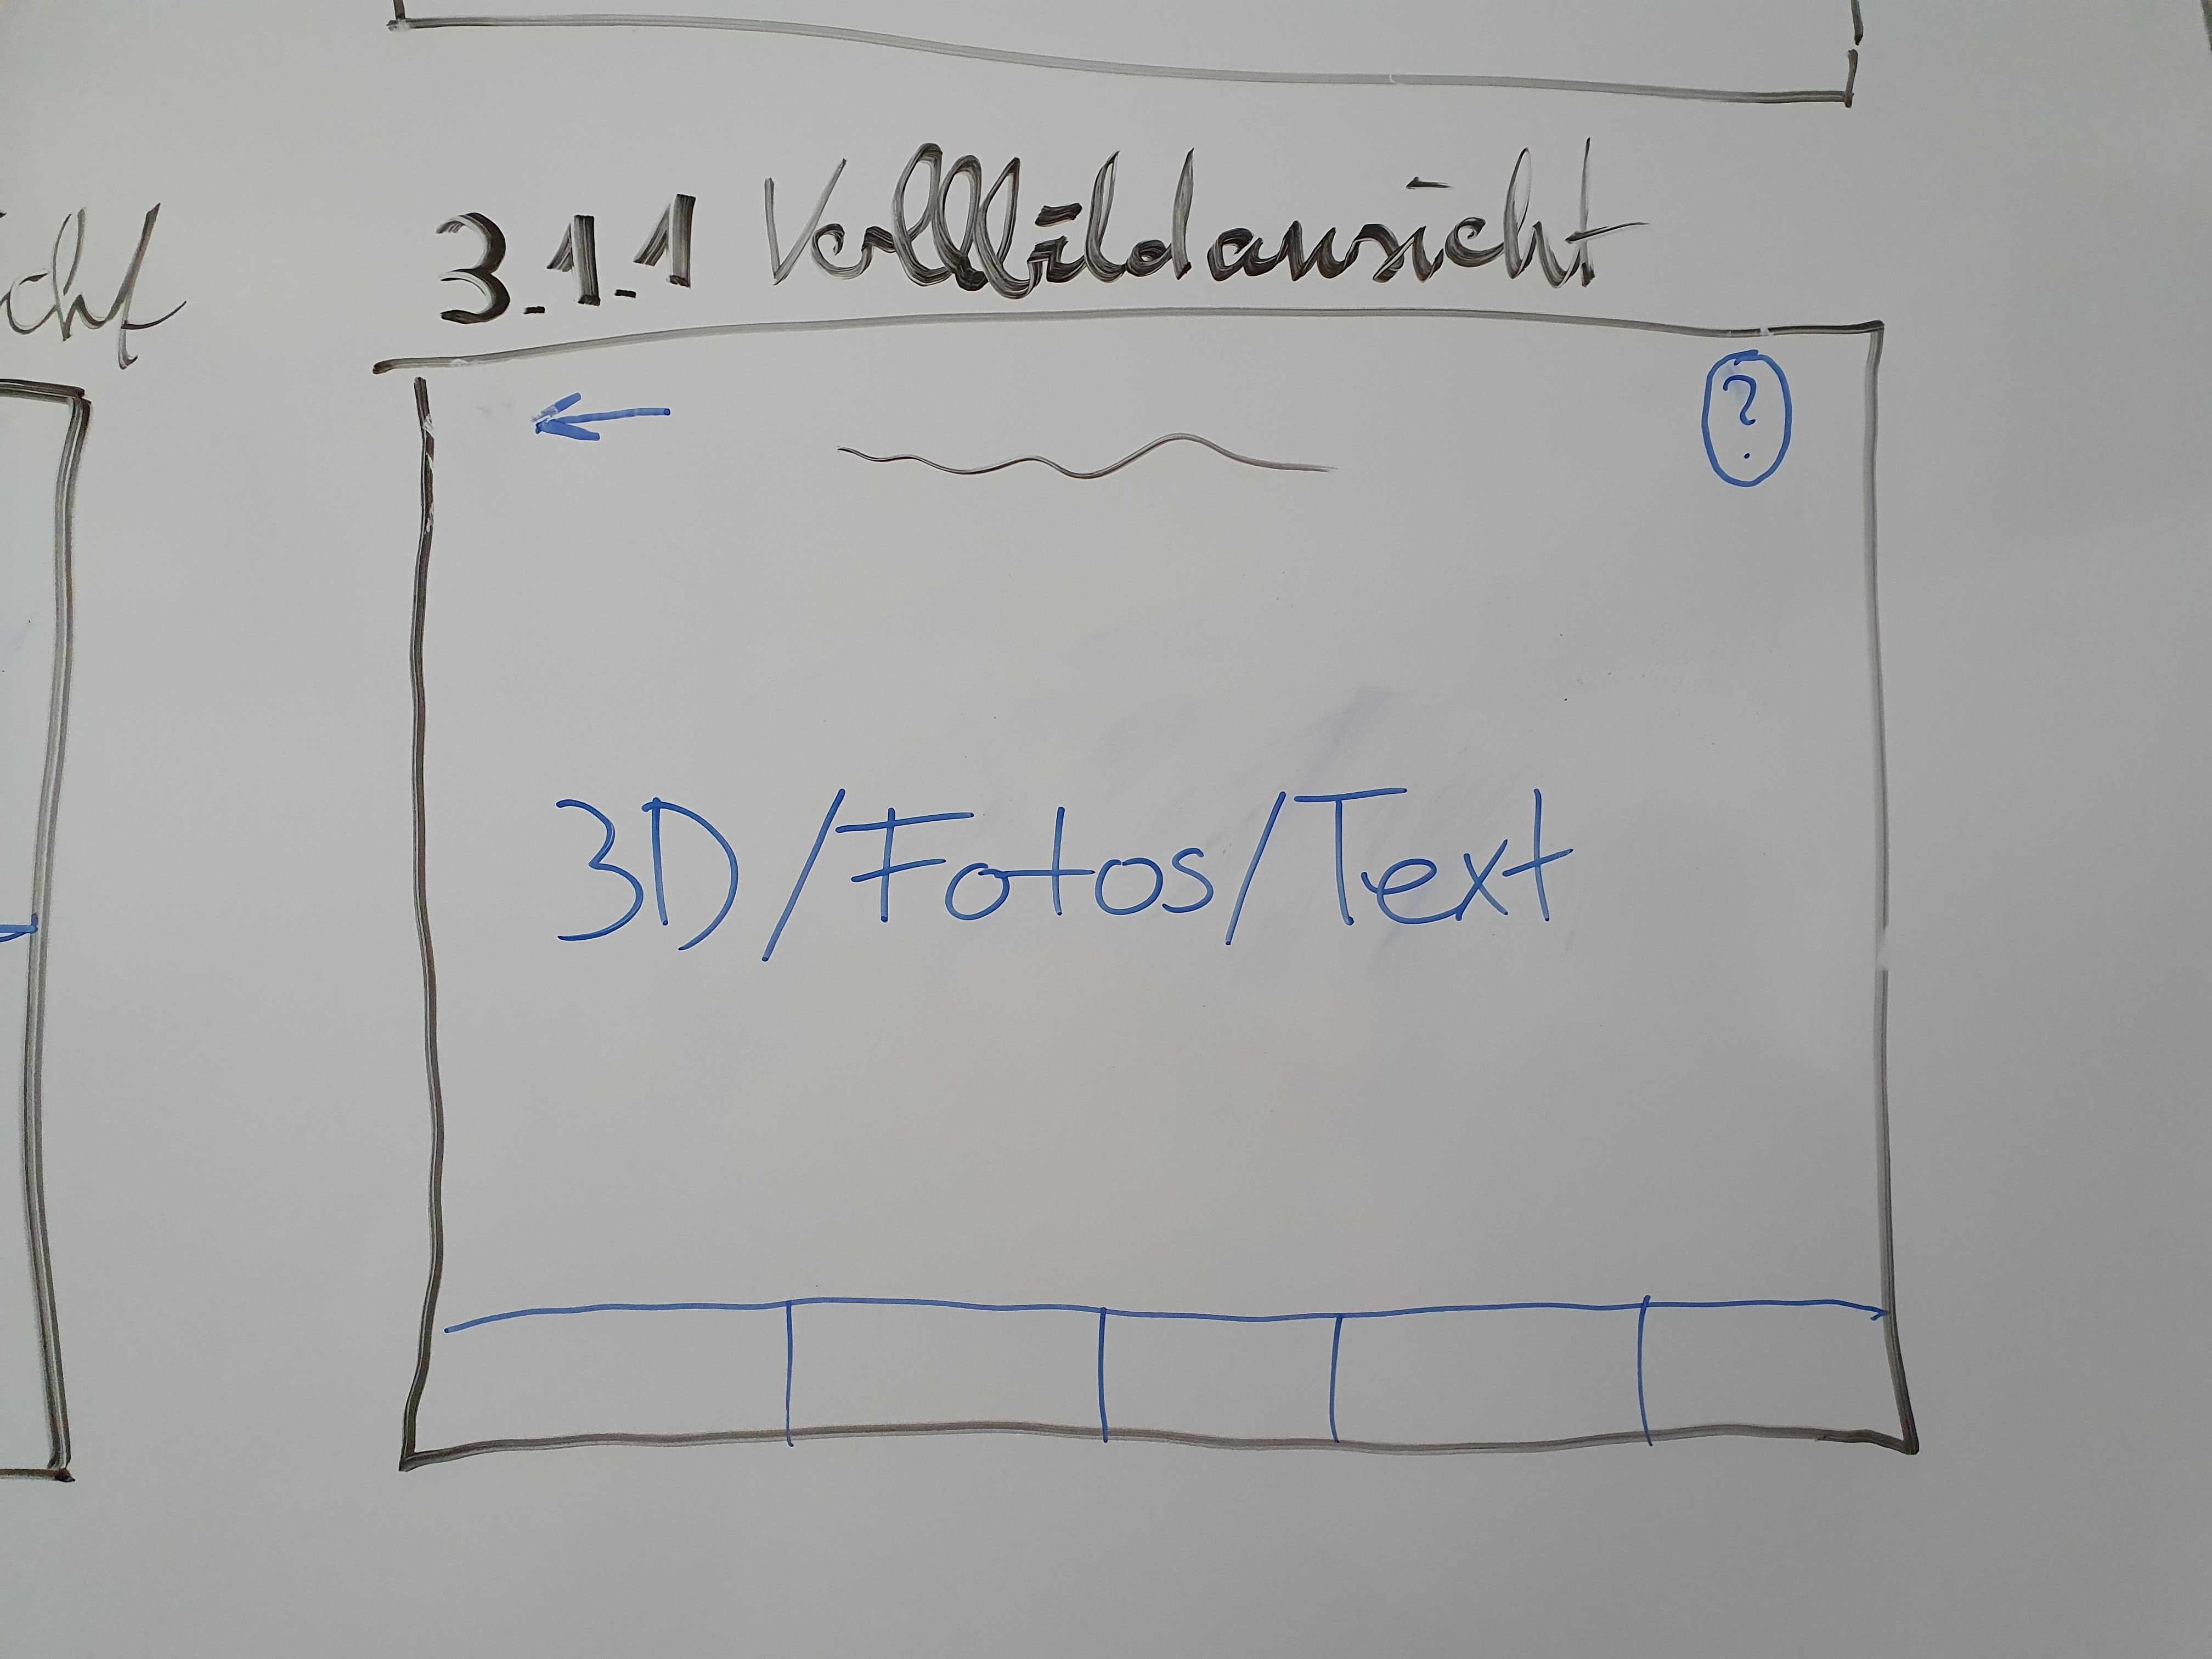 3.1.1 Vollbildansicht
?
3D/Fotos/Text